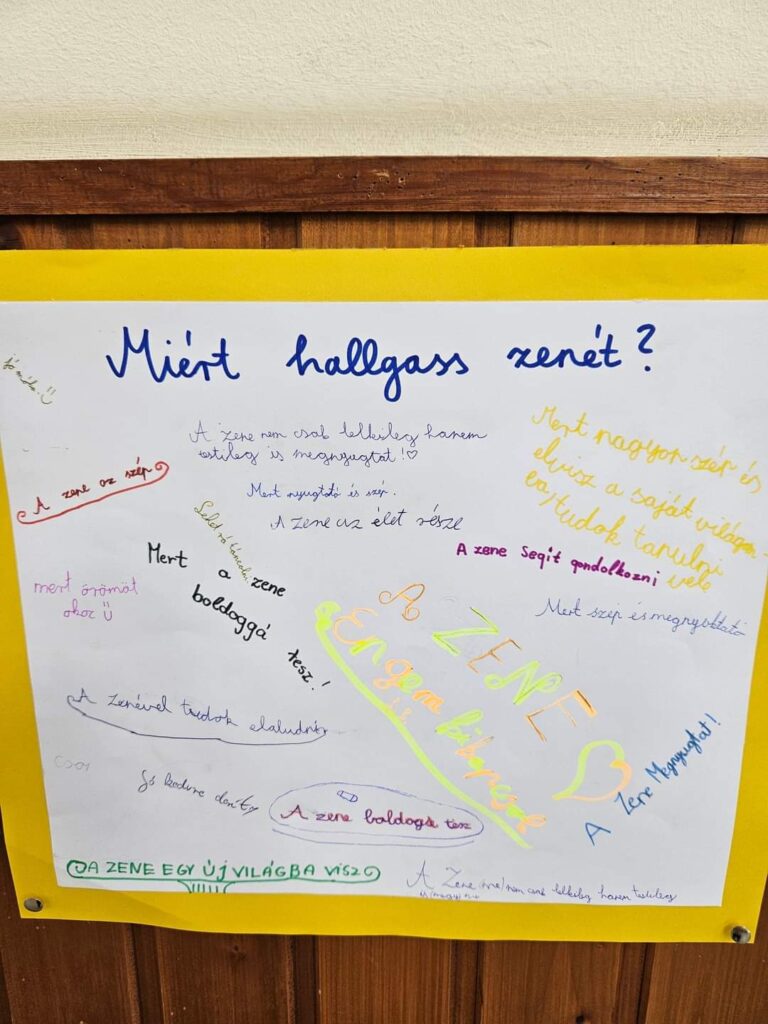 Miért hallgass zenét?
A zene nem csak lelkileg hanem
testileg is megnyugtat!♡
Mert nagyon szép és
elvisz a saját világom-
ba, tudok tanulni
vele
A zene az szép
Mert nyugtató és szép.
A zene az élet része
A zene segít gondolkozni
Mert a zene
boldoggá tesz!
mert örömöt
okoz
Mert szép és megnyugtató
A ZENE
Engem
is
kikapcsol
A zenével tudok elaludni
A Zene Megnyugtat!
Jó kedvre derít
A zene boldogá tesz
A ZENE EGY ÚJ VILÁGBA VISZ
A Zene nem csak lelkileg hanem testileg